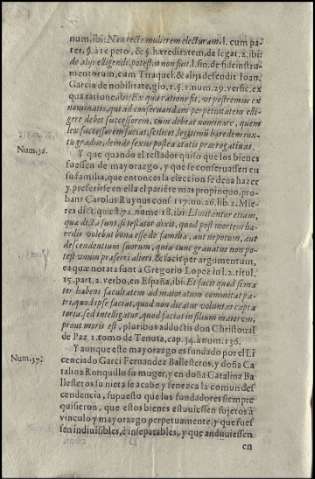 num. ibi: Non recte mulierem electuram, l. cum pa-
ter, §. à te peto, & §. hæreditatem, de legat. 2. ibi:
do alijs eligendi potestas non sit. l. fin. de fide instru-
mentorum, cum Tiraquel. & alijs defendit Ioan.
Garcia de nobilitate, glo. 1. §. 1. num. 29. versic. ex
qua ratione, ibi: Ex qua ratione fit, vt postremus ex
nominatis, qui ad conseruandam perpetuitatem eli-
gere debet successorem,
leu successorem faciat,
gradus, deinde sexus postea ætatis prærogatiuas.
Num. 36.
Y que quando el testador quiso que los bienes
fuessen de mayorazgo, y que se conseruassen en
su familia, que entonces la eleccion se deua hazer
y preferirse en ella el pariẽte mas propinquo, pro-
bant Carolus Ruynus conf. 117. nu. 26. lib. 2. Mie-
res dict. quæst. 32. nume. 18. ibi: Limitantur etiam,
quæ dicta sunt, si testator dixit, quod post mortem hæ-
redis volebat bona esse de familia, aut nepotum, aut
descendentium suorum, quia tunc grauatus non po-
test vnum præferri alteri: & facit per argumentum,
ea quæ notata sunt à Gregorio Lopez in l. 2. titul.
15. part. 2. verbo, en España, ibi: Et facit quod semper
habens facultatem ad maioratum committat pa-
tri, quod ipse faciat, quod non dicatur voluntas cap-
toria, sed intelligatur, quod faciat in filium maiorem,
prout moris est, pluribus adductis don Christoual
de Paz 1. tomo de Tenuta, cap. 34. à num. 136.
Num. 37.
Y aunque este mayorazgo es fundado por el Li
cenciado Garci Fernandez Ballesteros, y doña Ca
talina Ronquillo su muger, y en doña Catalina Ba
llesteros su nieta se acabe y fenezca la comun des
cendencia, supuesto que los fundadores siempre
quisieron, que estos bienes estuuiessen sujetos à
vinculo y mayorazgo perpetuamente, y que fues
sen indiuisibles, è inseparables, y que anduuiessen
en